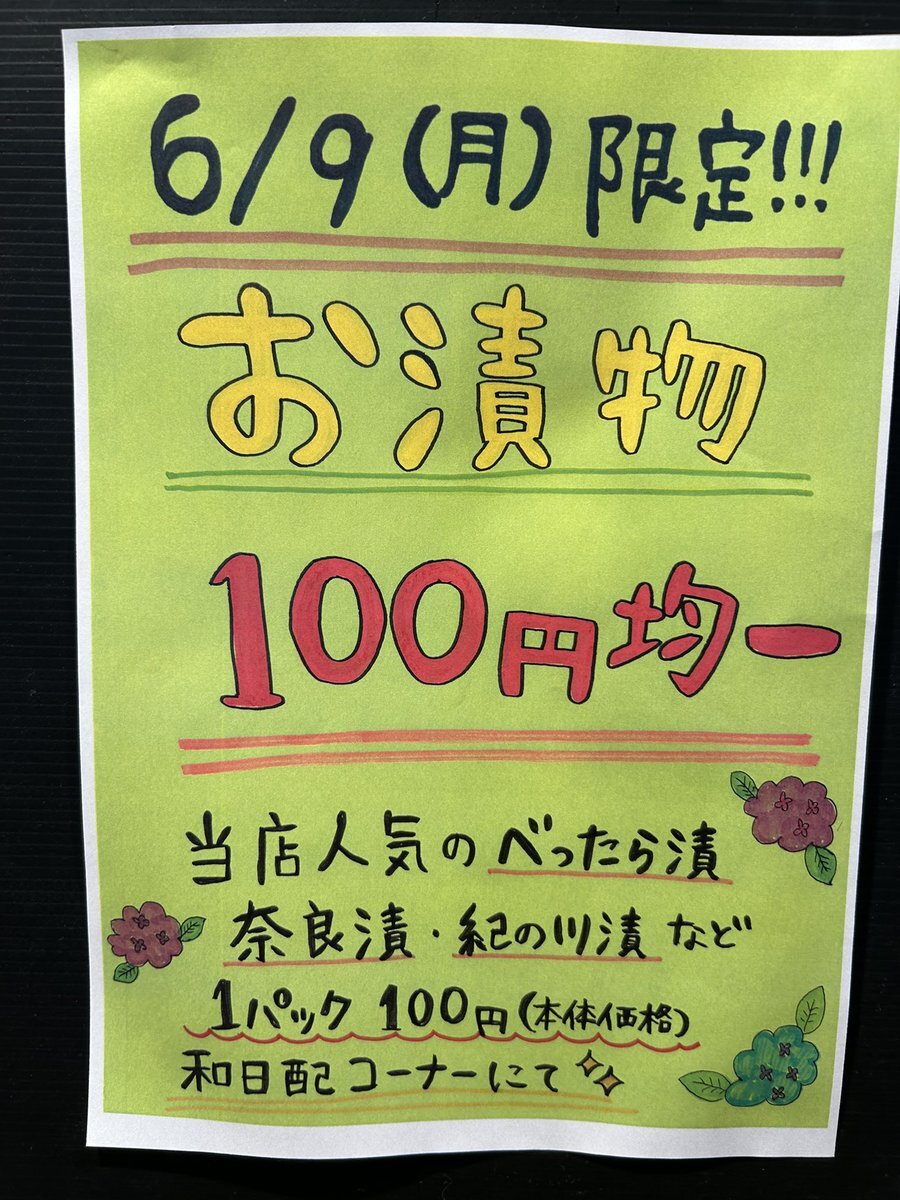 6/9(月)限定!!!
お漬物
100円均一
当店人気のべったら漬
奈良漬・紀の川漬など
1パック 100円(本体価格)
和日配コーナーにて